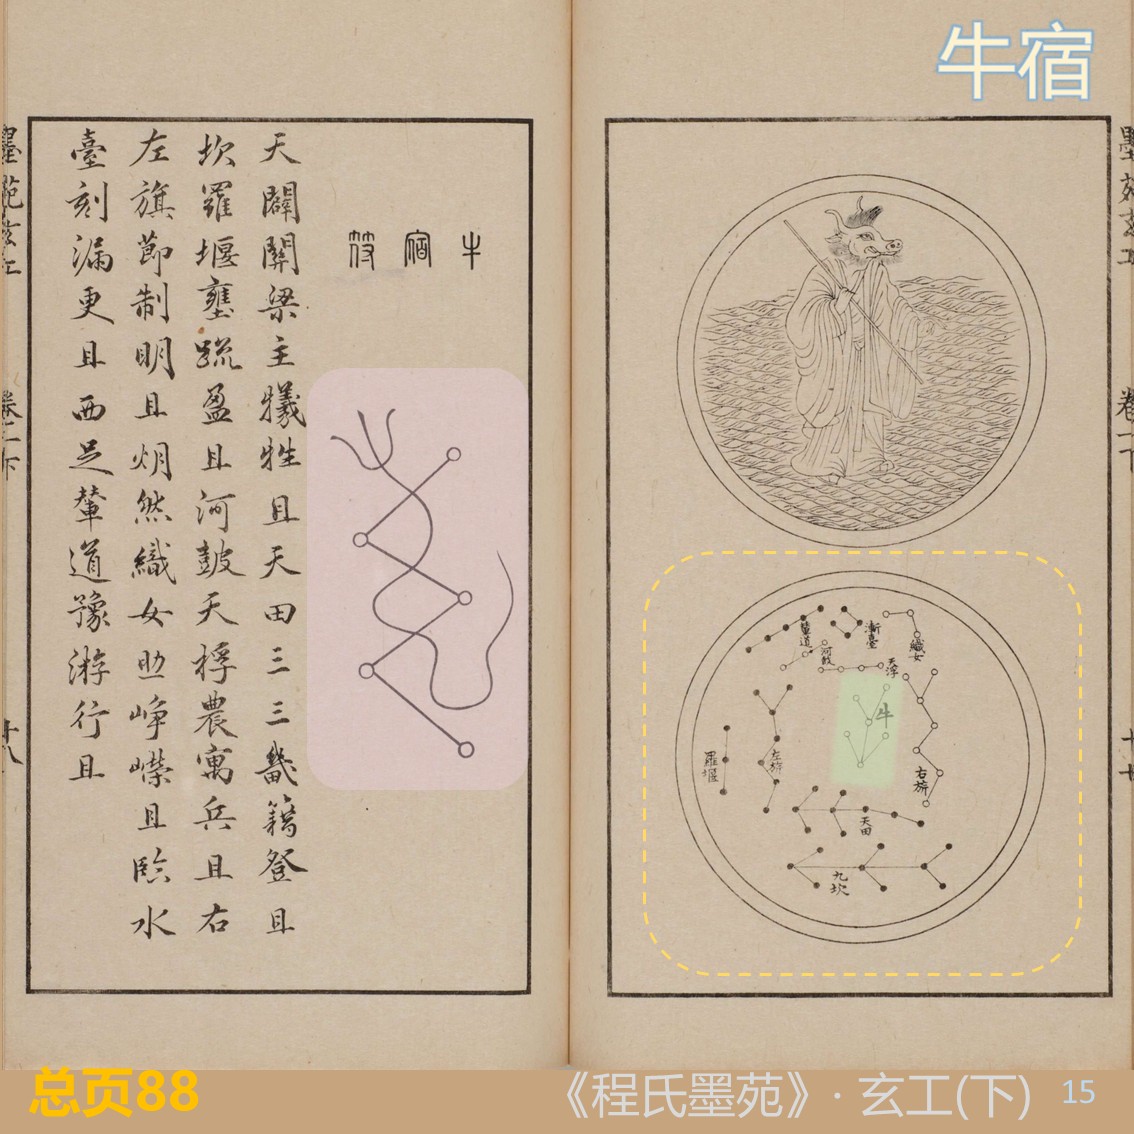 牛宿
墨苑玄工
卷二下
十七
輦道
漸臺
織女
河鼓
天浮
牛
左旂
羅堰
右旂
天田
九坎
牛宿符
天關關梁主犧牲且天田三三畿籍登且
坎羅堰壅疏盈且河鼓天桴農寓兵且右
左旗節制明且烱然織女助崢嶸且臨水
臺刻漏更且西足輦道豫游行且
墨苑玄工
卷二下
十八
总页88
《程氏墨苑》· 玄工(下) 15